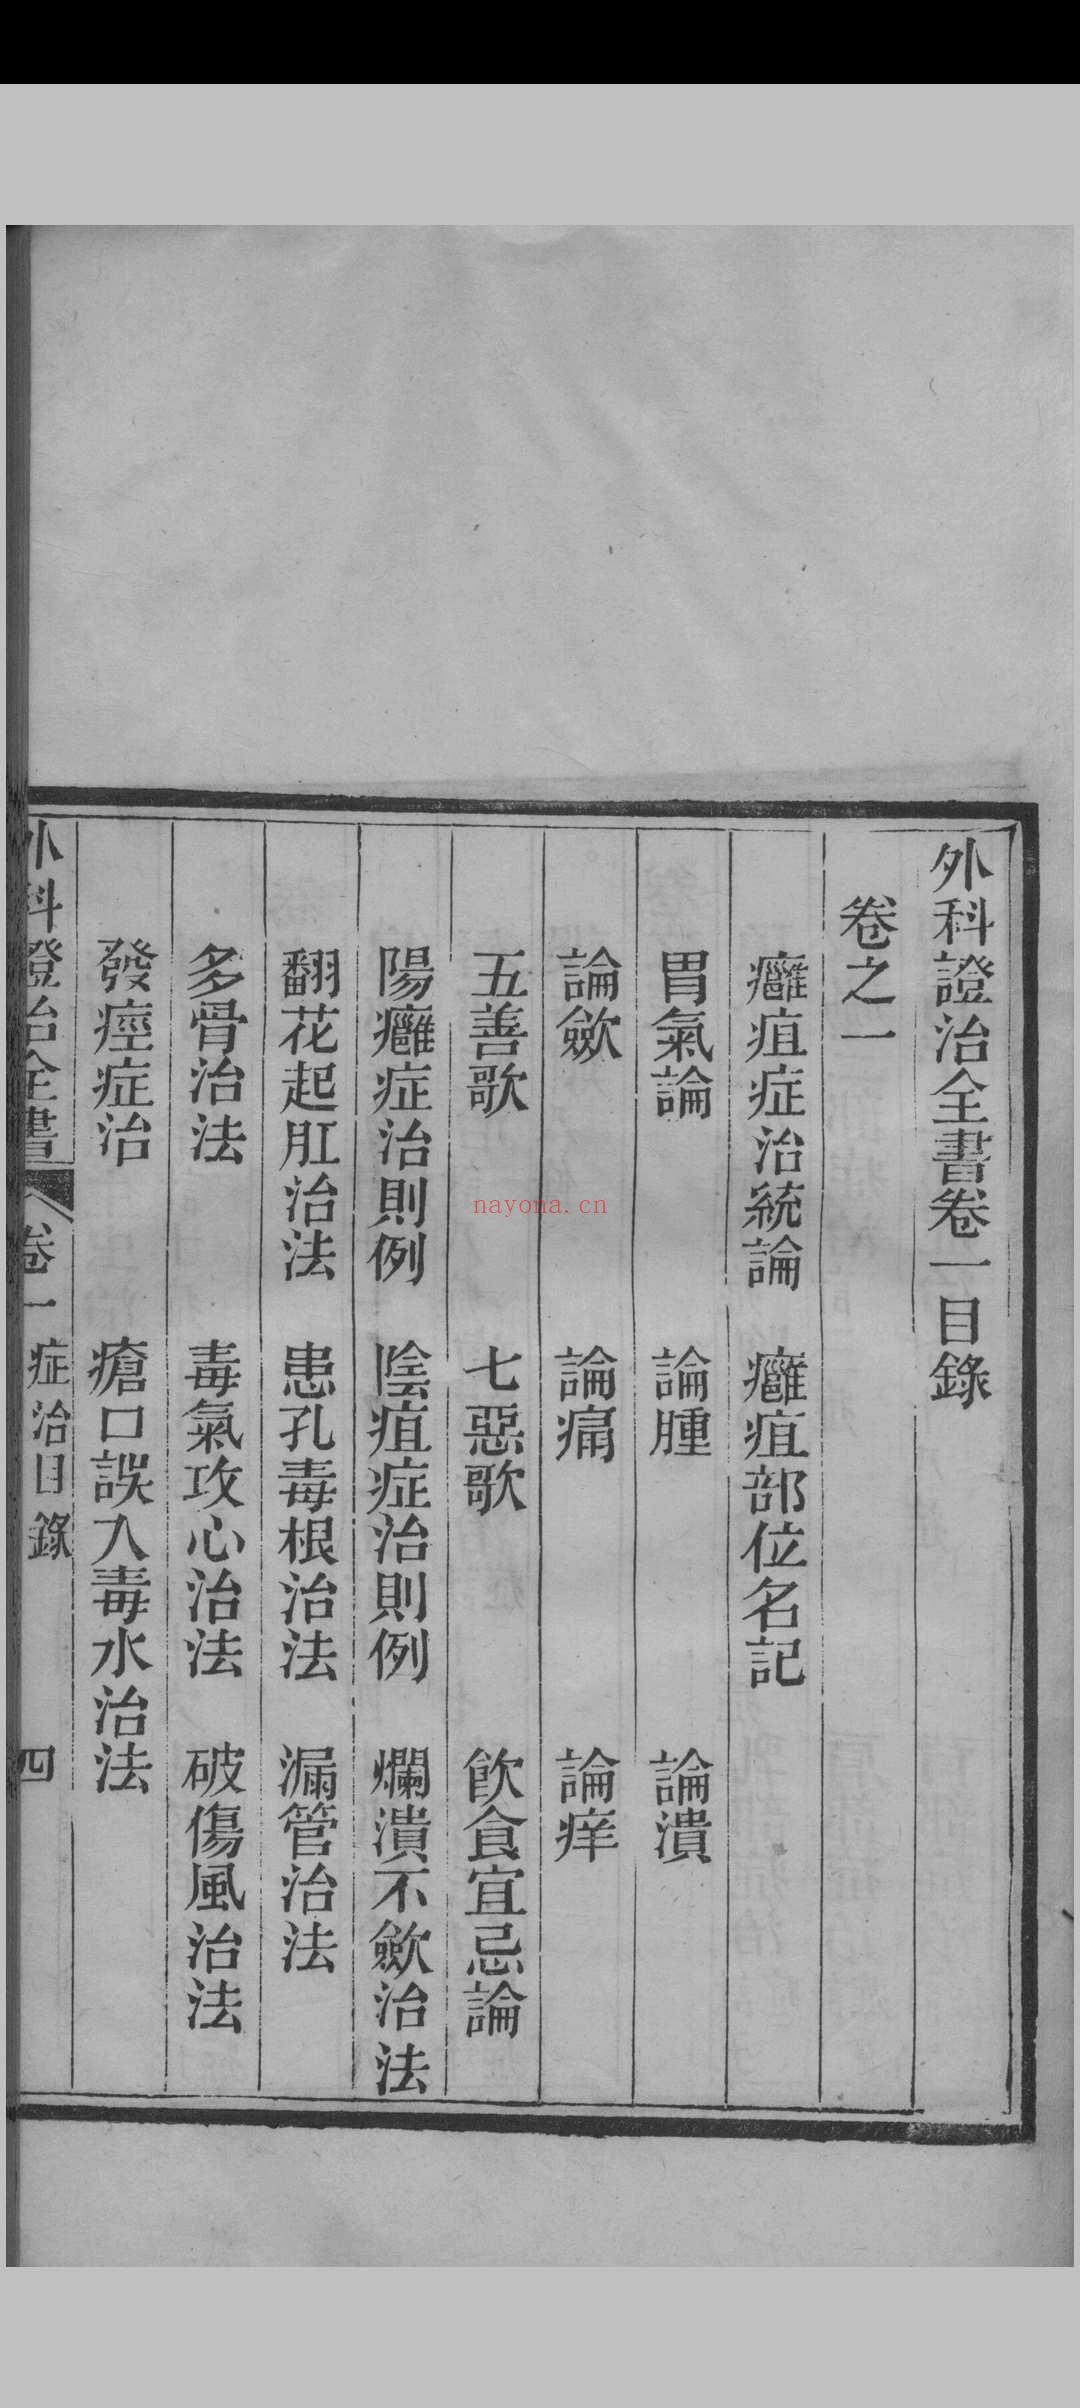 外科證治全書卷一目錄
卷之一
癰疽症治統論　癰疽部位名記
胃氣論　論腫　論潰
論歛　論痛　論痒
五善歌　七惡歌　飲食宜忌論
陽癰症治則例　陰疽症治則例　爛潰不歛治法
翻花起肛治法　患孔毒根治法　漏管治法
多骨治法　毒氣攻心治法　破傷風治法
發痙症治　瘡口誤入毒水治法
外科證治全書　卷一　症治目錄　四
nayona.cn